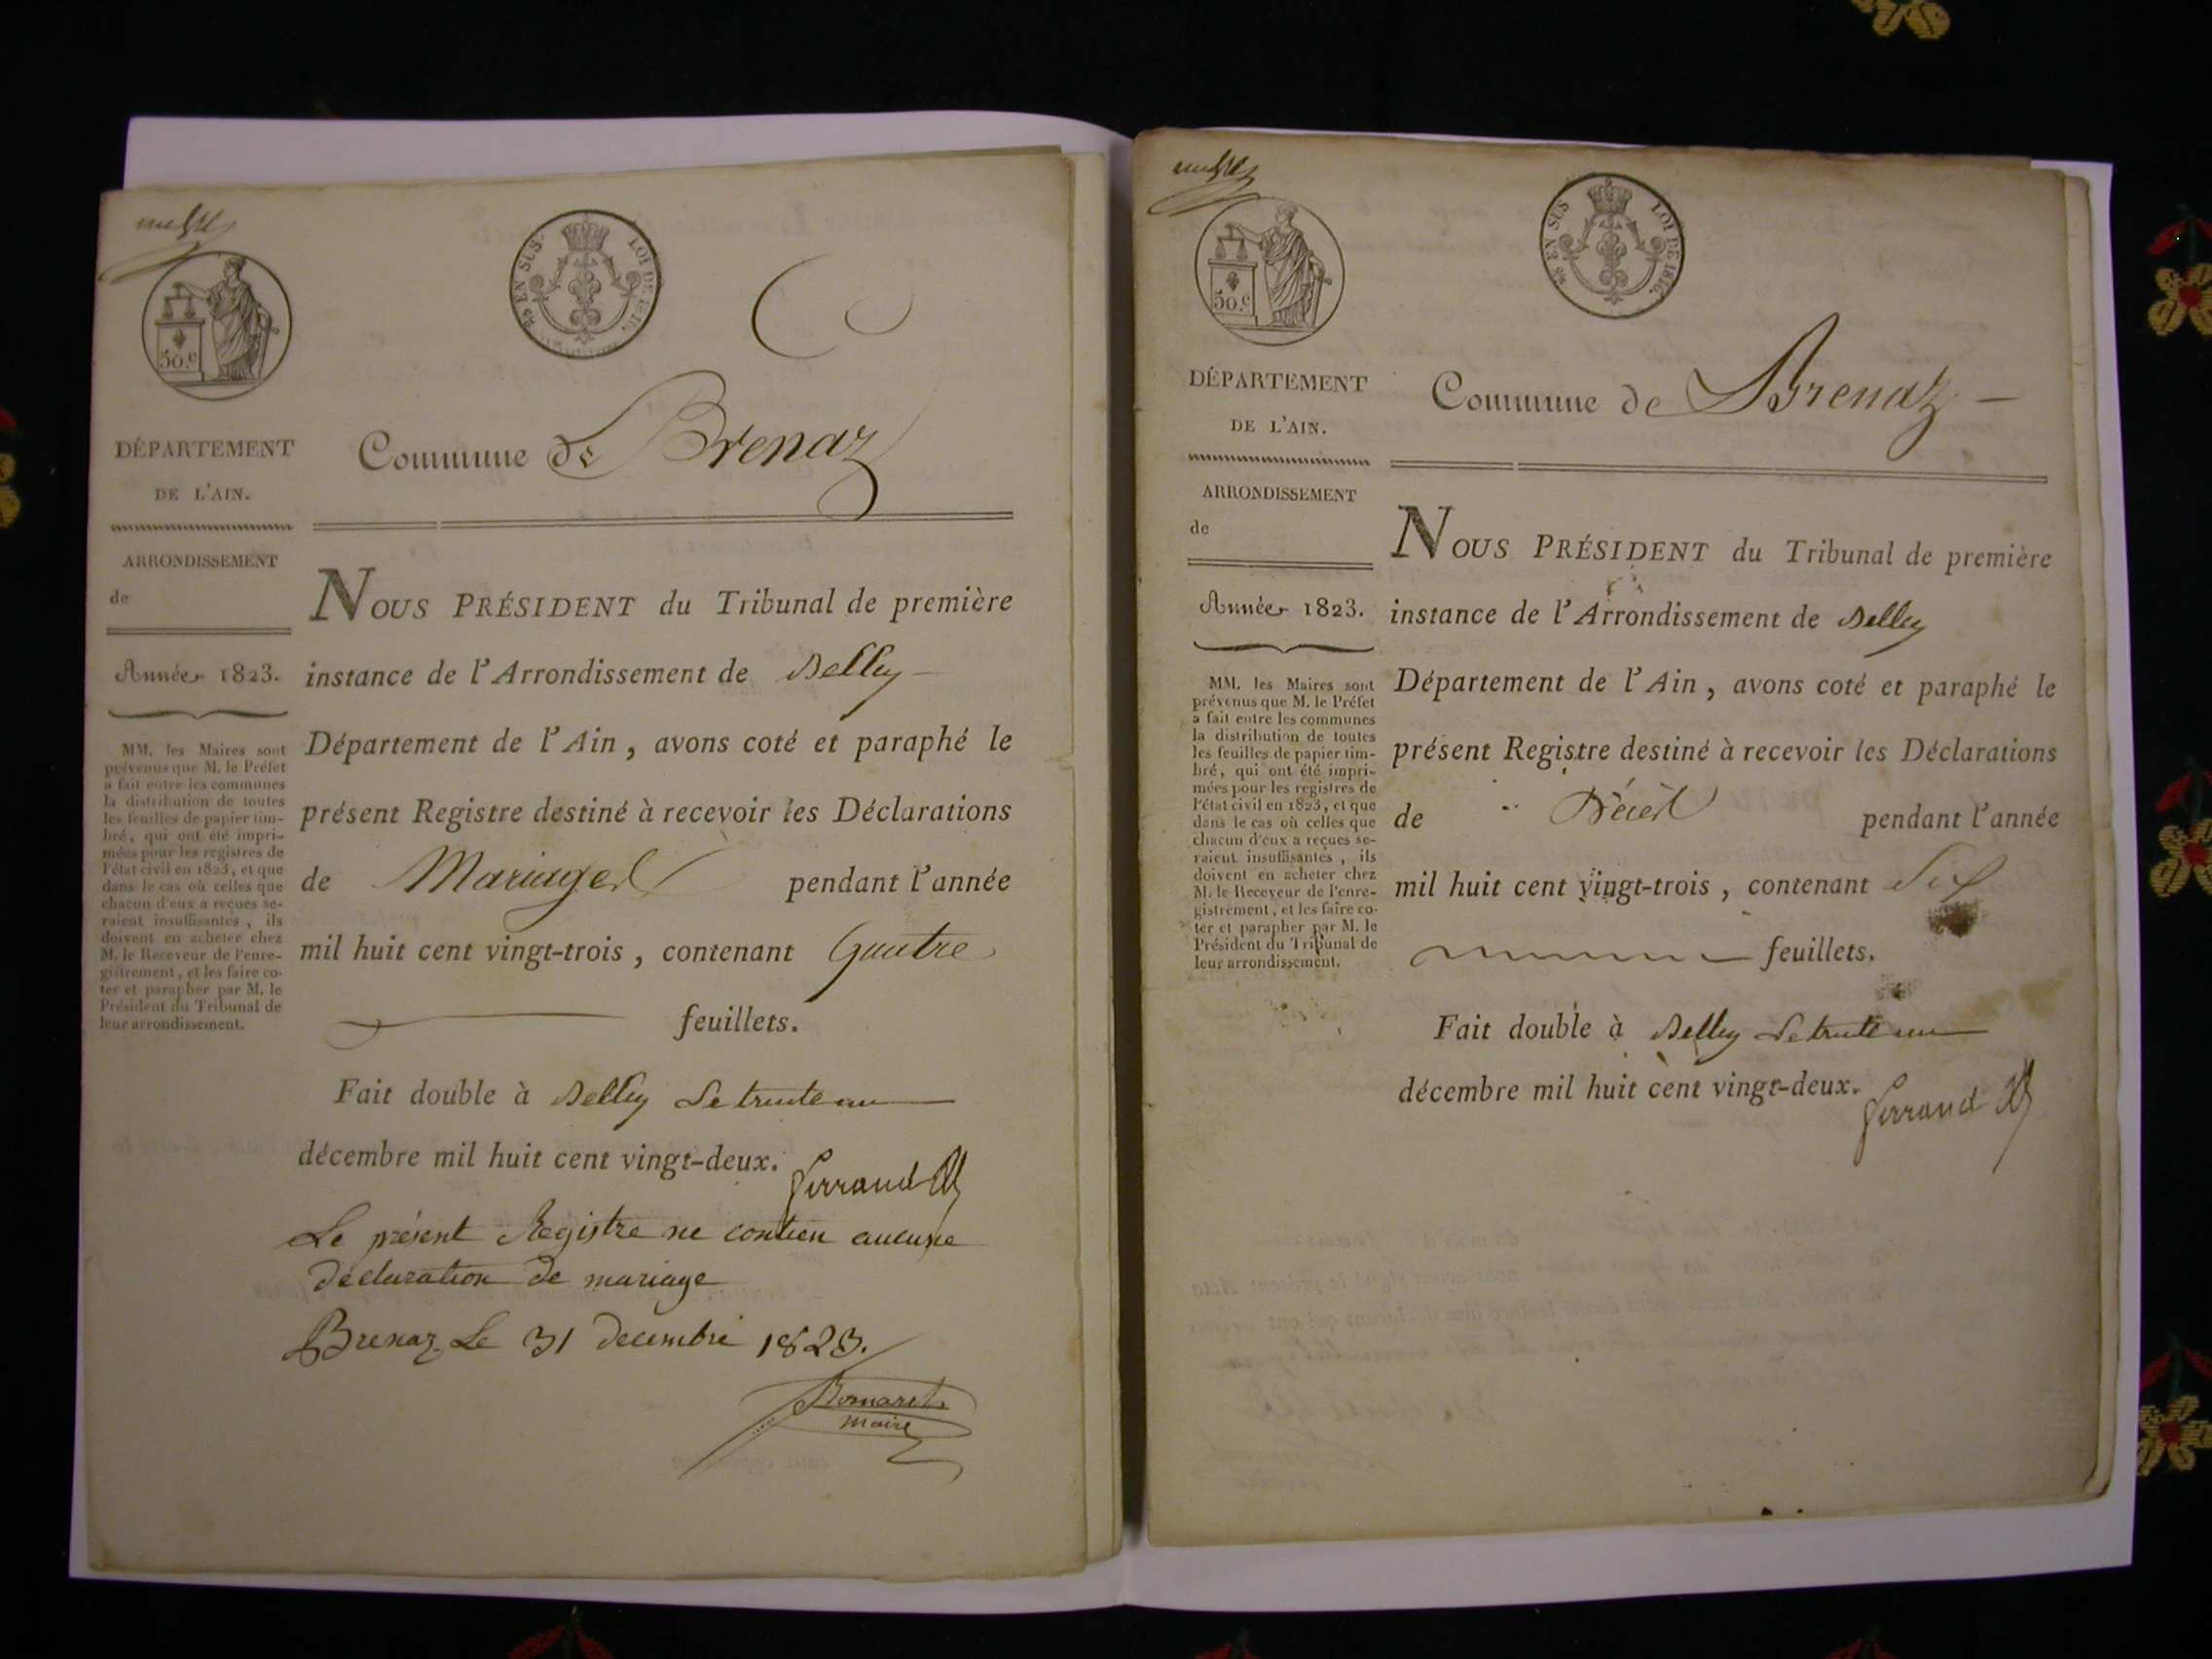 50.c
25 EN SUS. LOI DE 1816.
DÉPARTEMENT
DE L'AIN.
ARRONDISSEMENT
de
Année 1823.
MM. les Maires sont
prévenus que M. le Préfet
a fait entre les communes
la distribution de toutes
les feuilles de papier tim-
bré, qui ont été impri-
mées pour les registres de
l'état civil en 1823, et que
dans le cas où celles que
chacun d'eux a reçues se-
raient insuffisantes, ils
doivent en acheter chez
M. le Receveur de l'enre-
gistrement, et les faire co-
ter et parapher par M. le
Président du Tribunal de
leur arrondissement.
Commune de Brenaz
NOUS PRÉSIDENT du Tribunal de première
instance de l'Arrondissement de Belley
Département de l'Ain, avons coté et paraphé le
présent Registre destiné à recevoir les Déclarations
de Mariages pendant l'année
mil huit cent vingt-trois, contenant Quatre
feuillets.
Fait double à Belley Le trente un
décembre mil huit cent vingt-deux.
Ferrand
Le présent Registre ne contien aucune
declaration de mariage
Brenaz Le 31 decembre 1823.
Bornaret
maire
50.c
25 EN SUS LOI DE 1816.
DÉPARTEMENT
DE L'AIN.
ARRONDISSEMENT
de
Année 1823.
MM. les Maires sont
prévenus que M. le Préfet
a fait entre les communes
la distribution de toutes
les feuilles de papier tim-
bré, qui ont été impri-
mées pour les registres de
l'état civil en 1823, et que
dans le cas où celles que
chacun d'eux a reçues se-
raient insuffisantes, ils
doivent en acheter chez
M. le Receveur de l'enre-
gistrement, et les faire co-
ter et parapher par M. le
Président du Tribunal de
leur arrondissement.
Commune de Brenaz
NOUS PRÉSIDENT du Tribunal de première
instance de l'Arrondissement de Belley
Département de l'Ain, avons coté et paraphé le
présent Registre destiné à recevoir les Déclarations
de Décès pendant l'année
mil huit cent vingt-trois, contenant Six
feuillets.
Fait double à Belley Le trente un
décembre mil huit cent vingt-deux.
Ferrand